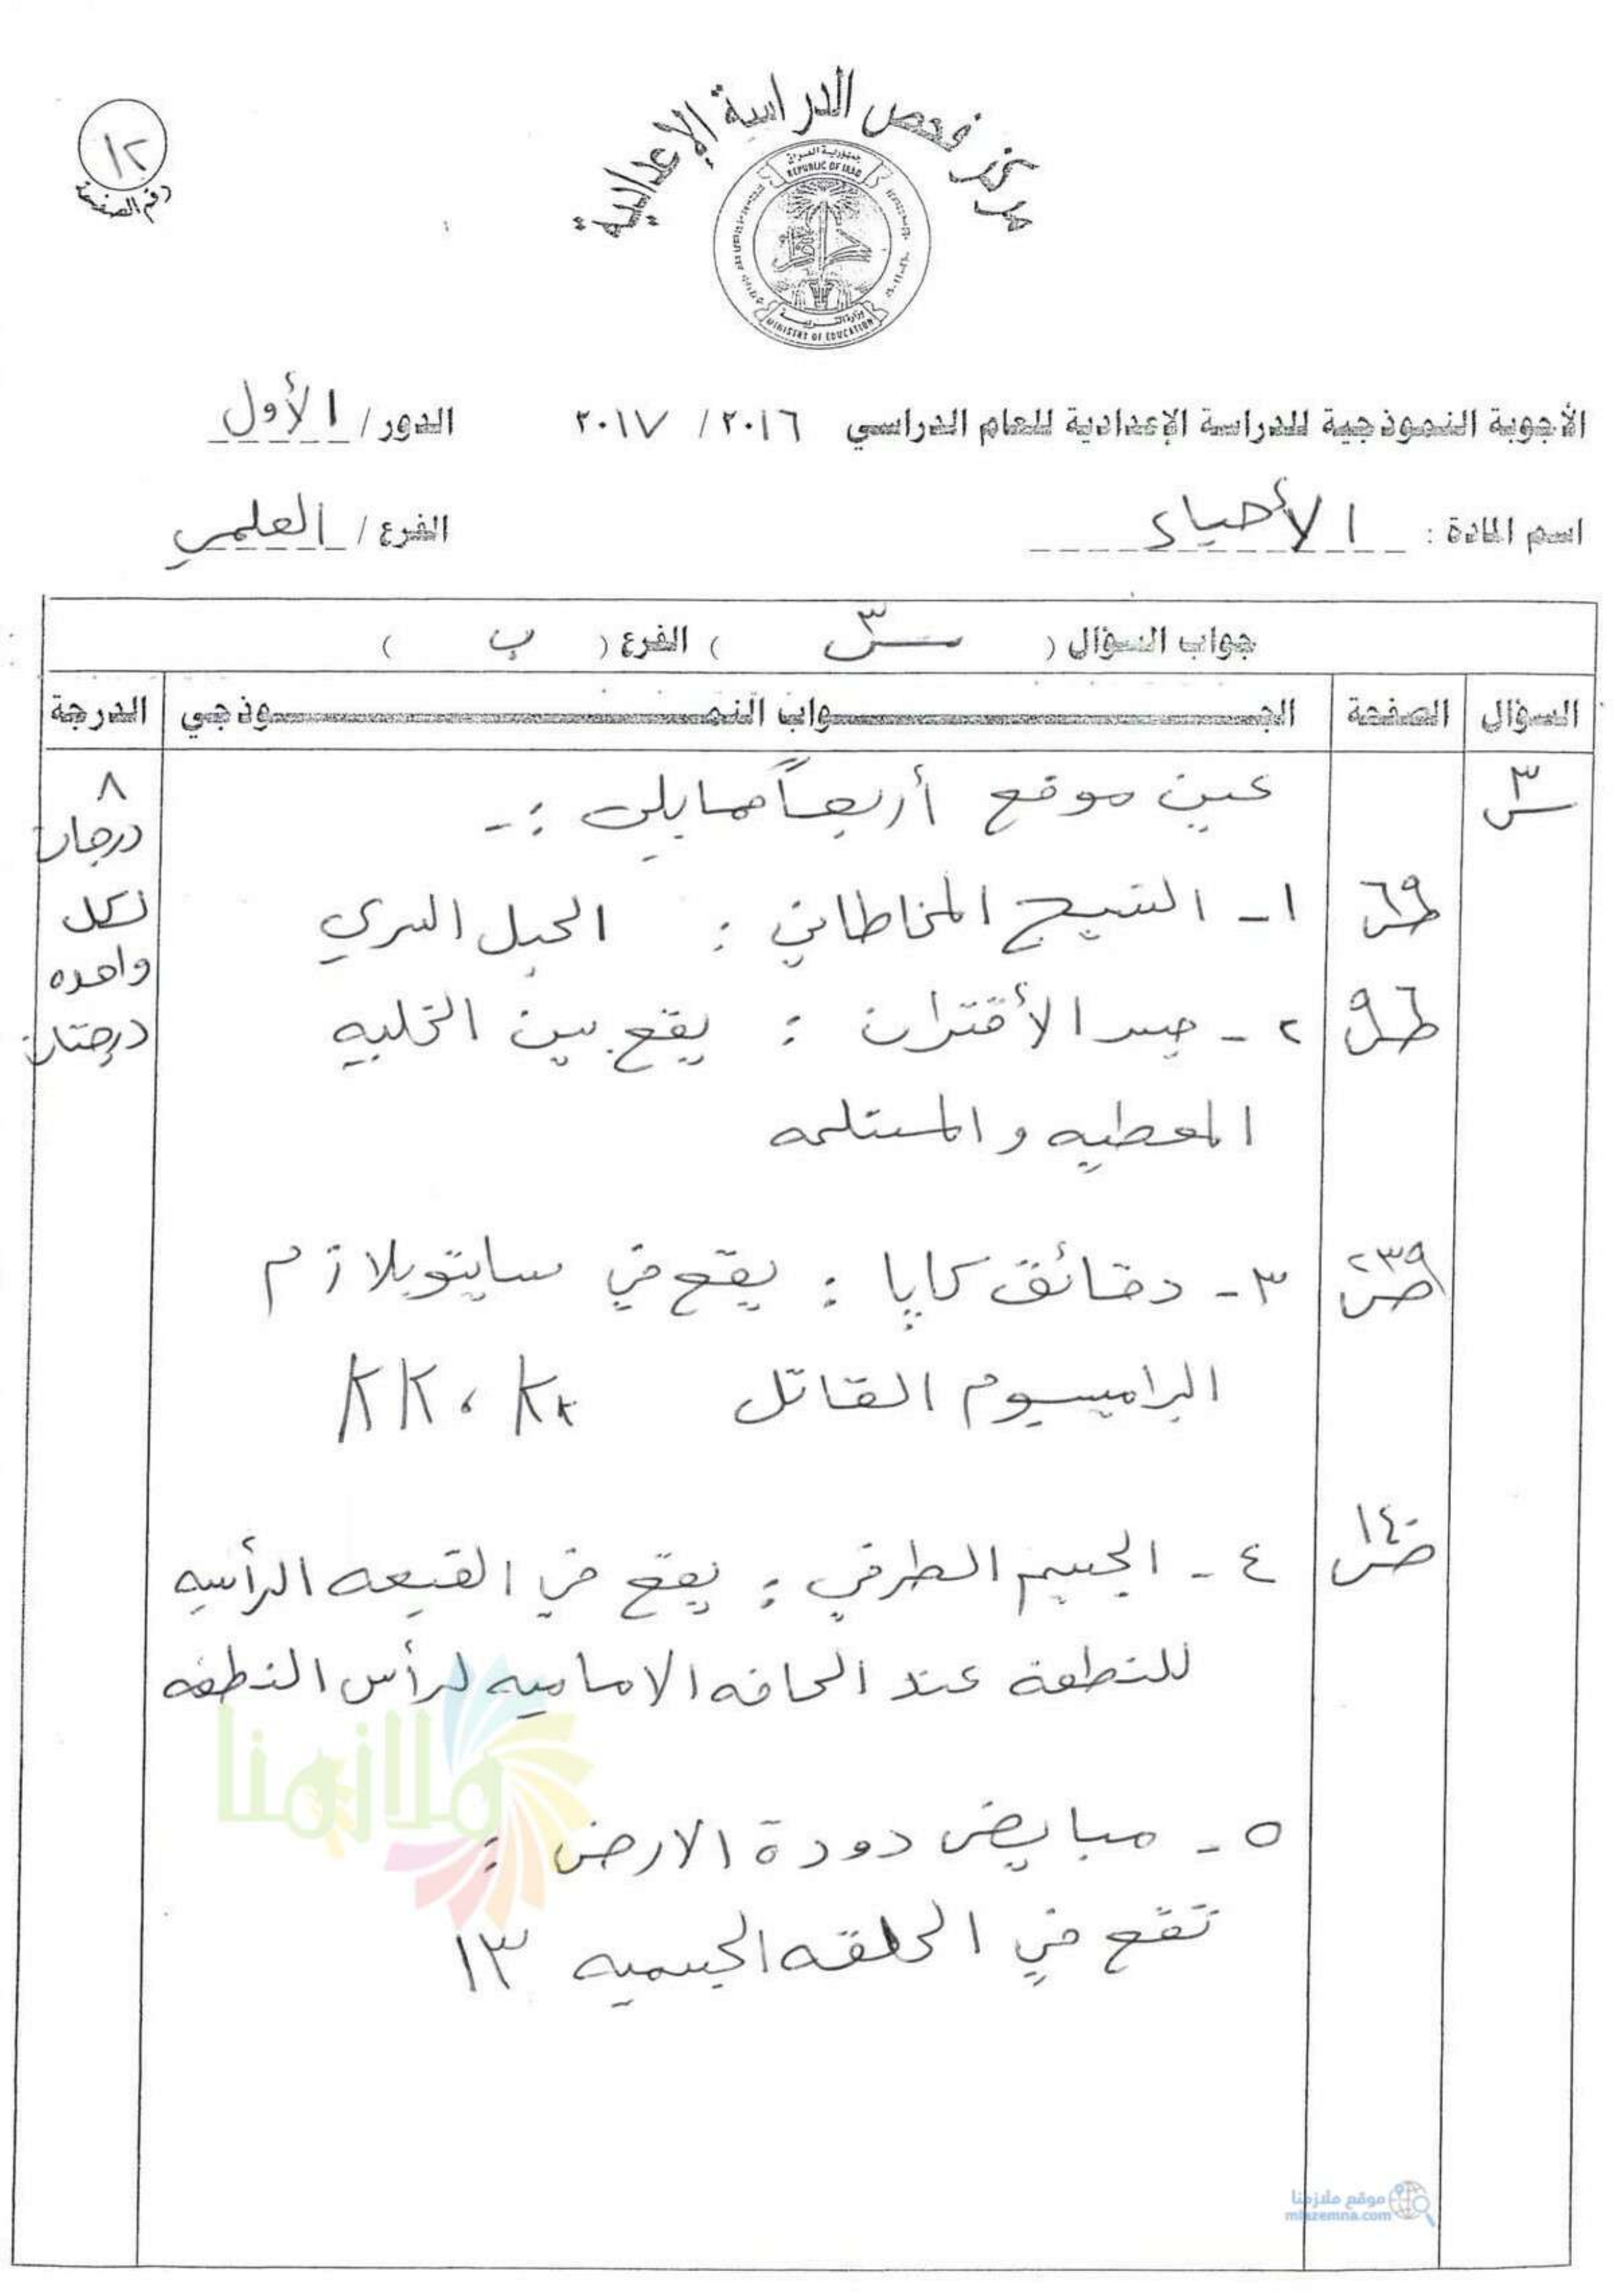 ١٢
رقم الصفحة
مركز فحص الدراسة الإعدادية
جمهورية العراق
REPUBLIC OF IRAQ
وزارة التربية
MINISTRY OF EDUCATION
الأجوبة النموذجية للدراسة الإعدادية للعام الدراسي ٢٠١٦ / ٢٠١٧ الدور / الأول
اسم المادة : الأحياء الفرع / العلمي
جواب السؤال ( س٣ ) الفرع ( ب )
السؤال الصفحة الجـــواب النمـــوذجي الدرجة
س٣ عين موقع أربعاً مما يلي :- ٨ درجات
لكل واحده درجتان
ص٦٩ ١- النسيج المخاطاني : الحبل السري
ص٩٦ ٢- جسر الأقتران : يقع بين الخليه
المعطيه والمستلمه
ص٢٣٩ ٣- دقائق كابا : يقع في سايتوبلازم
البراميسيوم القاتل KK ، Kk
ص١٤٠ ٤- الجسيم الطرفي : يقع في القبعه الرأسيه
للنطفة عند الحافه الاماميه لرأس النطفه
٥- مبايض دودة الارض :
تقع في الحلقه الجسميه ١٣
ملازمنا
موقع ملازمنا
mlazemna.com